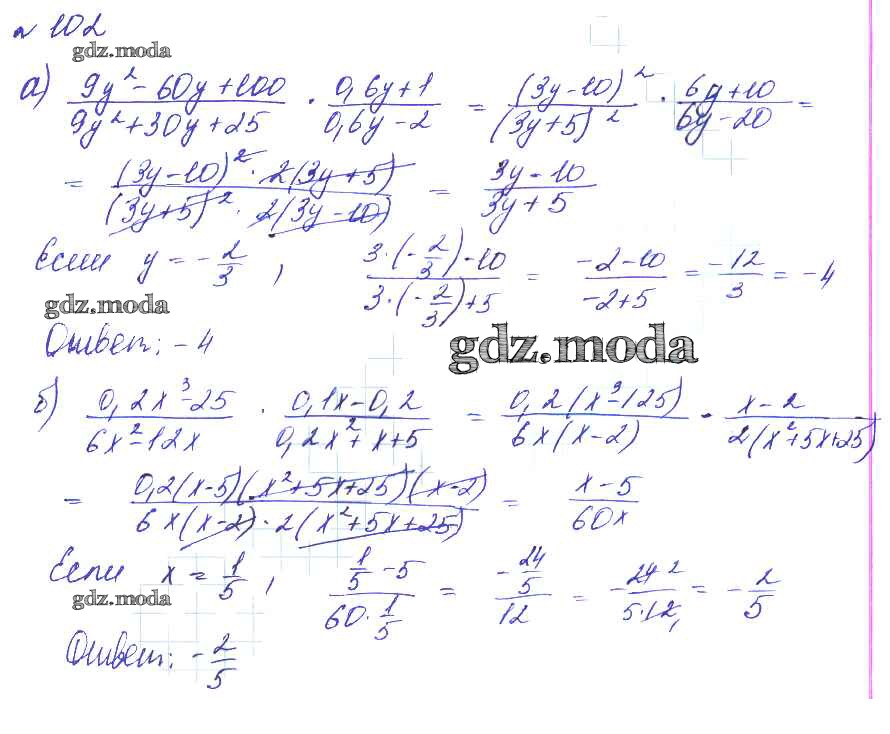 № 102
gdz.moda
а) (9y² - 60y + 100)/(9y² + 30y + 25) · (0,6y + 1)/(0,6y - 2) = (3y - 10)²/(3y + 5)² · (6y + 10)/(6y - 20) =
= ((3y - 10)² · 2(3y + 5))/((3y + 5)² · 2(3y - 10)) = (3y - 10)/(3y + 5)
Если y = -2/3, (3·(-2/3) - 10)/(3·(-2/3) + 5) = (-2 - 10)/(-2 + 5) = -12/3 = -4
gdz.moda
Ответ: -4
gdz.moda
б) (0,2x³ - 25)/(6x² - 12x) · (0,1x - 0,2)/(0,2x² + x + 5) = (0,2(x³ - 125))/(6x(x - 2)) · (x - 2)/(2(x² + 5x + 25))
= (0,2(x - 5)(x² + 5x + 25)(x - 2))/(6x(x - 2) · 2(x² + 5x + 25)) = (x - 5)/(60x)
Если x = 1/5, (1/5 - 5)/(60 · 1/5) = (-24/5)/12 = -(24 2)/(5·12,) = -2/5
gdz.moda
Ответ: -2/5